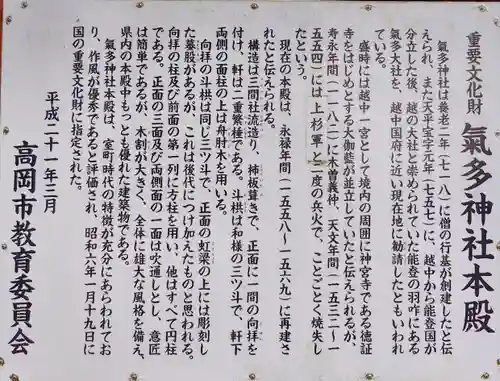 重要文化財
氣多神社本殿
氣多神社は養老二年(七一八)に僧の行基が創建したと伝
えられ、また天平宝字元年(七五七)に、越中から能登国が
分立した後、越の大社と崇められていた能登の羽咋にある
氣多大社を、越中国府に近い現在地に勧請したともいわれ
ている。
盛時には越中一宮として境内の周囲に神宮寺である徳証
寺をはじめとする大伽藍が並立していたと伝えられるが、
寿永年間(一一八二)に木曽義仲、天文年間(一五三二~一
五五四)には上杉軍と二度の兵火で、ことごとく焼失し
たという。
現在の本殿は、永禄年間(一五五八~一五六九)に再建さ
れたと伝えられる。
構造は三間社流造り、杮板葺きで、正面に一間の向拝を
付け、軒は二重繁種である。斗栱は和様の三ツ斗で、軒下
両側の面柱の上は舟肘木を用いる。
向拝の斗栱は同じ三ツ斗で、正面の虹梁の上には彫刻し
た蟇股があるが、これは後代につけ加えたものと思われる。
向拝の柱及び前面の第一列に方柱を用い、他はすべて円柱
である。正面の三面及び両側面の一面は吹通しとし、意匠
は簡単であるが、木割が大きく、全体に雄大な風格を備え、
県内の本殿中もっとも優れた建築物である。
氣多神社本殿は、室町時代の特徴が充分にあらわれてお
り、作風が優秀であると評価され、昭和六年一月十九日に
国の重要文化財に指定された。
平成二十一年三月
高岡市教育委員会